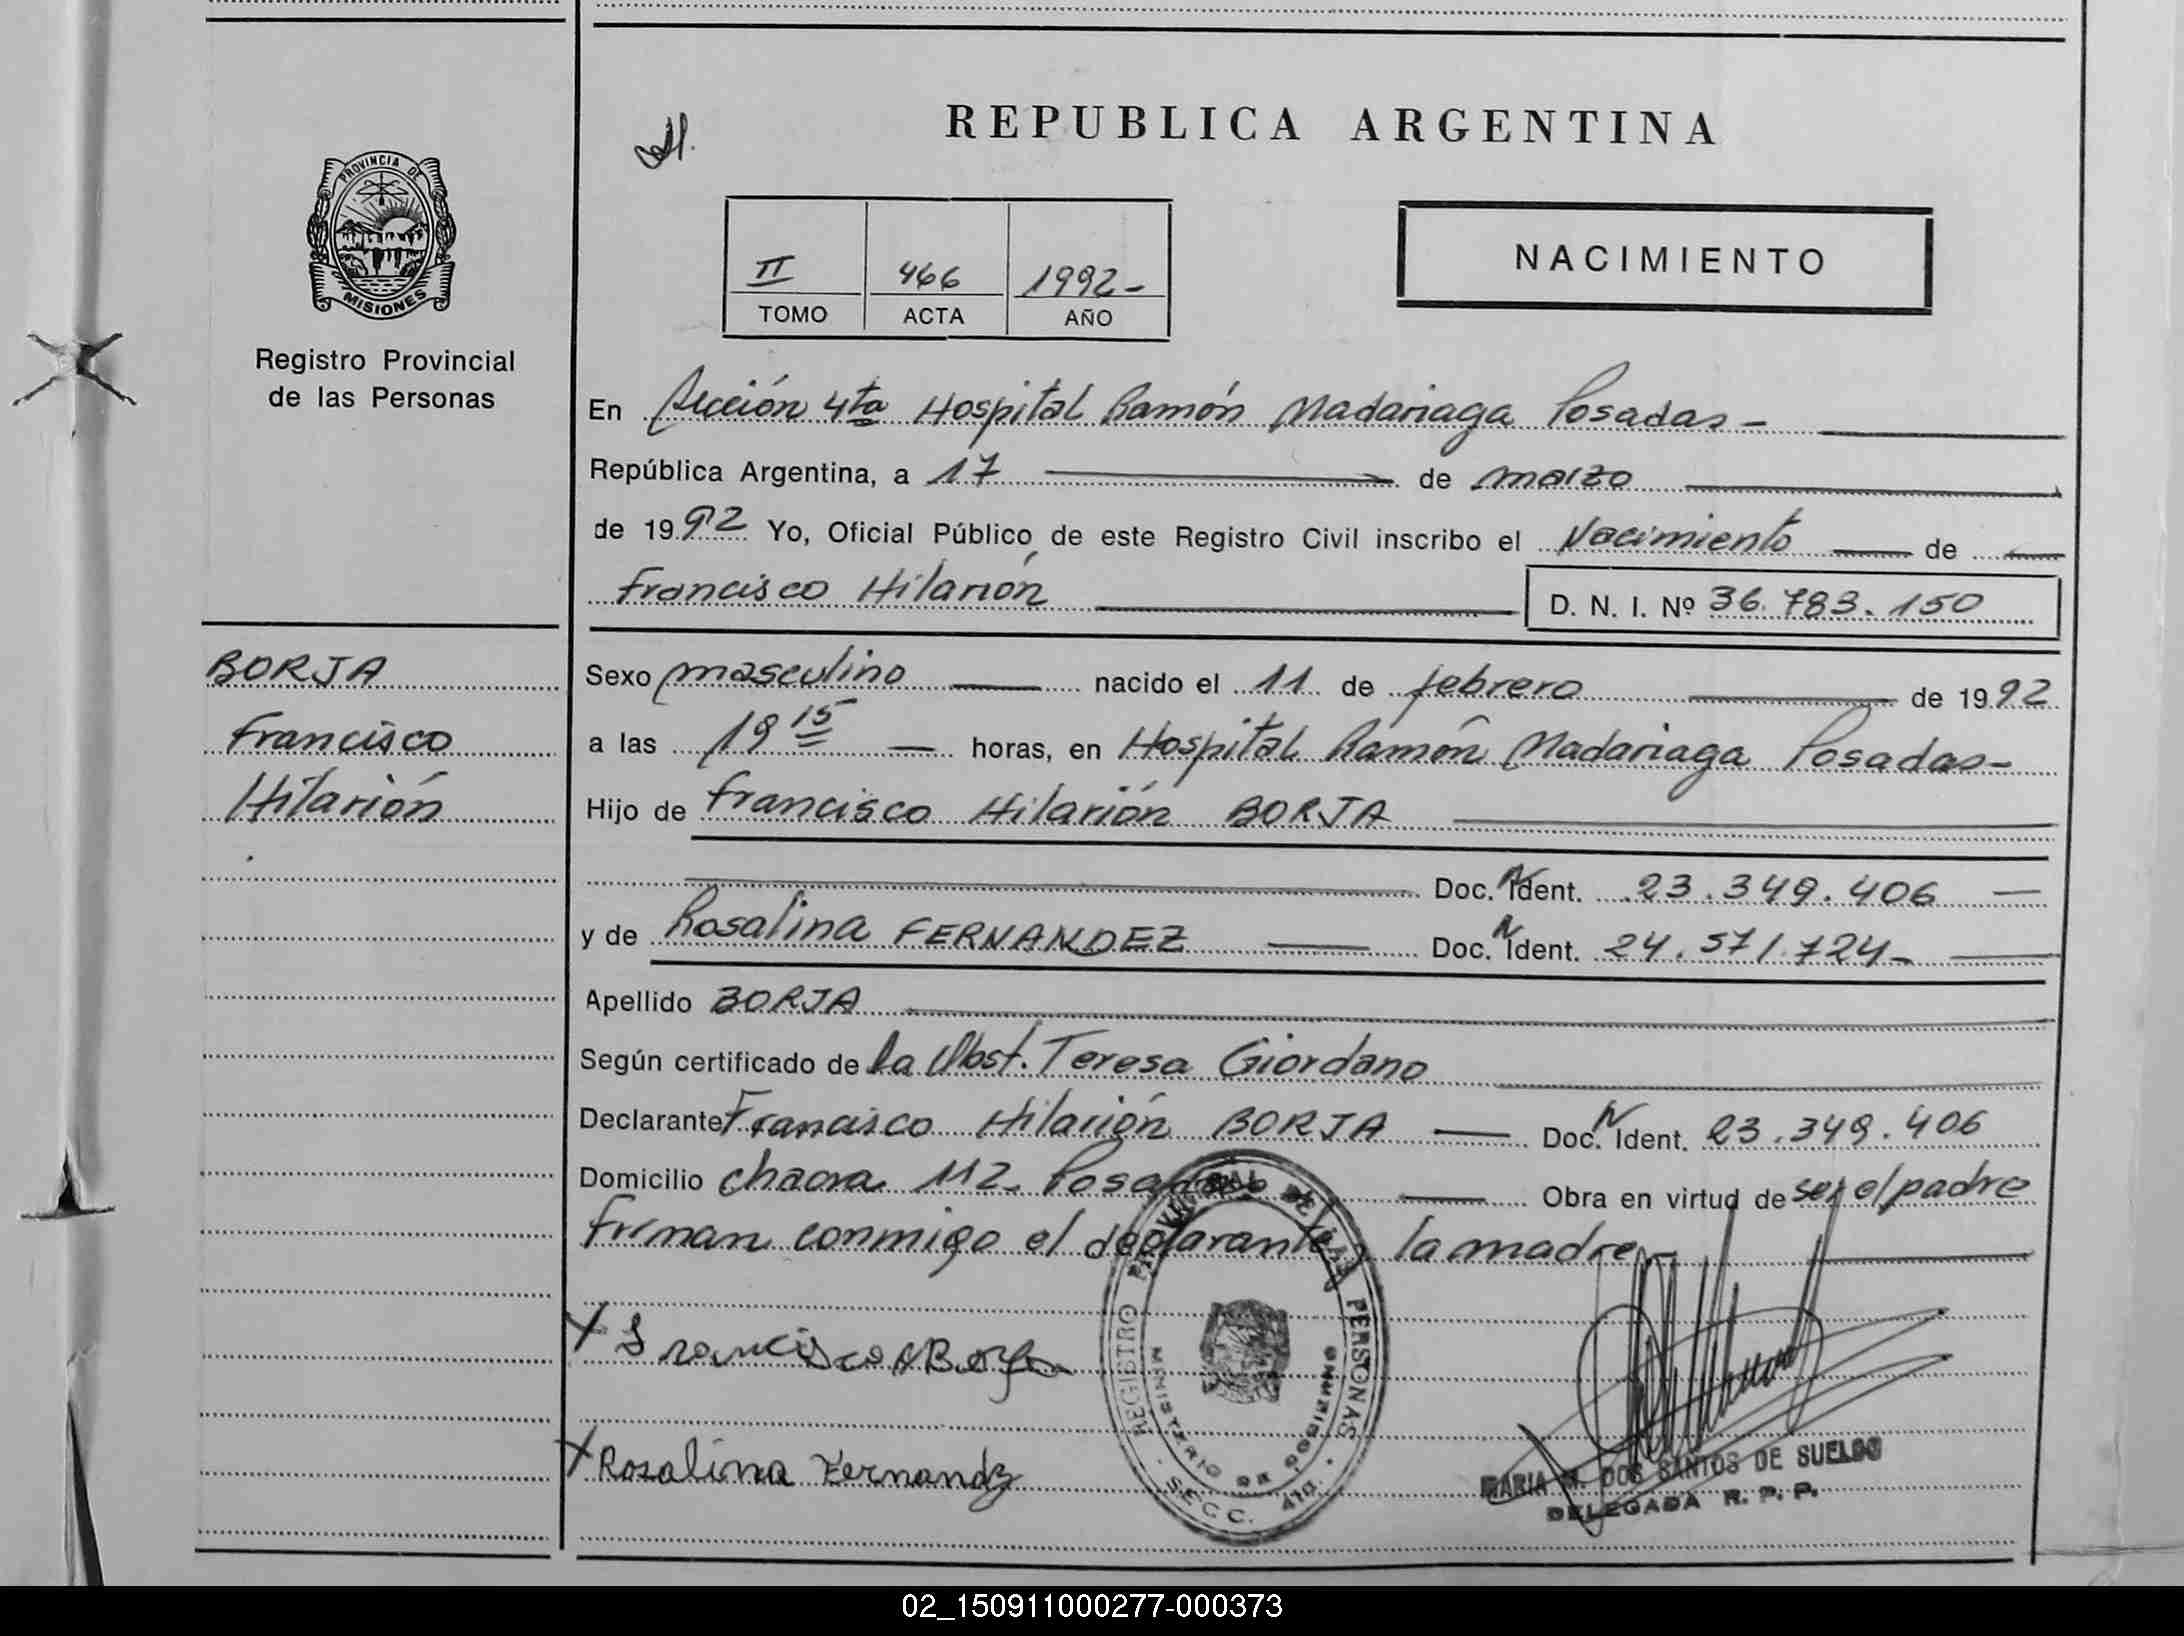 REPUBLICA ARGENTINA
PROVINCIA DE
MISIONES
Registro Provincial
de las Personas
II 466 1992-
TOMO ACTA AÑO
NACIMIENTO
En Sección 4ta Hospital Ramón Madariaga Posadas-
República Argentina, a 17 de marzo
de 1992 Yo, Oficial Público de este Registro Civil inscribo el Nacimiento de
Francisco Hilarión D. N. I. Nº 36.783.150
BORJA
Francisco
Hilarión
Sexo masculino nacido el 11 de febrero de 1992
a las 19 15 horas, en Hospital Ramón Madariaga Posadas-
Hijo de Francisco Hilarión BORJA
Doc. N Ident. 23.349.406
y de Rosalina FERNANDEZ Doc. N Ident. 24.571.724-
Apellido BORJA
Según certificado de la Obst. Teresa Giordano
Declarante Francisco Hilarión BORJA Doc. N Ident. 23.349.406
Domicilio chacra 112- Posadas Obra en virtud de ser el padre
Firman conmigo el declarante y la madre-
x Francisco H Borja
x Rosalina Fernandz
REGISTRO PROVINCIAL DE LAS PERSONAS
MINISTERIO DE GOBIERNO
SECC. 4ta.
MARIA M. DOS SANTOS DE SUELDO
DELEGADA R. P. P.
02_150911000277-000373